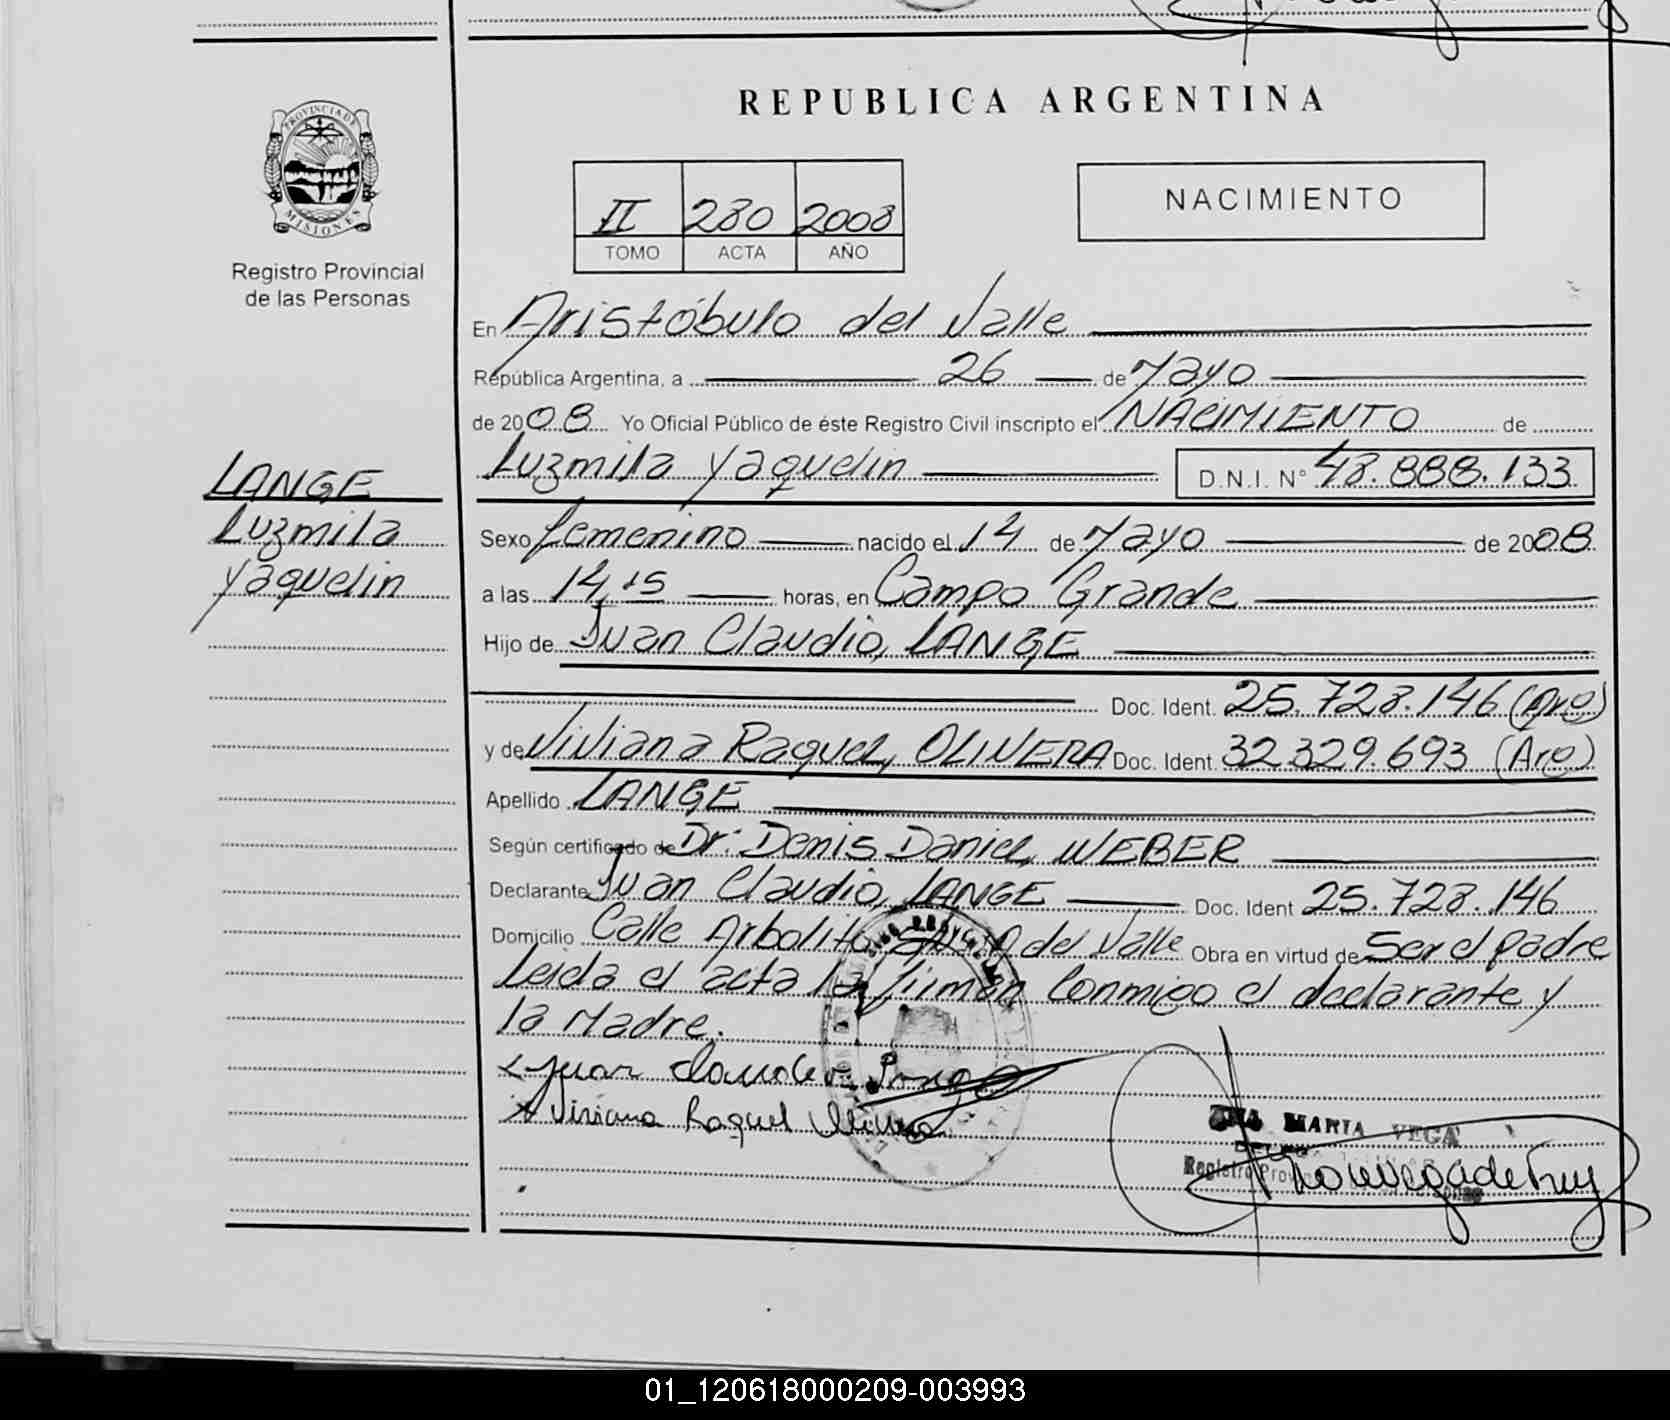 REPUBLICA ARGENTINA
PROVINCIA DE
MISIONES
Registro Provincial
de las Personas
II 280 2008
TOMO ACTA AÑO
NACIMIENTO
LANGE
Luzmila
Yaquelin
En Aristóbulo del Valle
República Argentina, a 26 de Mayo
de 2008 Yo Oficial Público de éste Registro Civil inscripto el NACIMIENTO de
Luzmila Yaquelin D.N.I. N° 48.888.133
Sexo femenino nacido el 14 de Mayo de 2008
a las 14,15 horas, en Campo Grande
Hijo de Juan Claudio, LANGE
Doc. Ident. 25.728.146 (Arg)
y de Viviana Raquel, OLIVERA Doc. Ident. 32.329.693 (Arg)
Apellido LANGE
Según certificado de Dr. Denis Daniel, WEBER
Declarante Juan Claudio, LANGE Doc. Ident 25.728.146
Domicilio Calle Arbolito del Valle Obra en virtud de Ser el padre
Leida el acta la firman Conmigo el declarante y
la Madre.
x Juan Claudio Lange
x Viviana Raquel Olivera
ANA MARIA VEGA
Registro
01_120618000209-003993